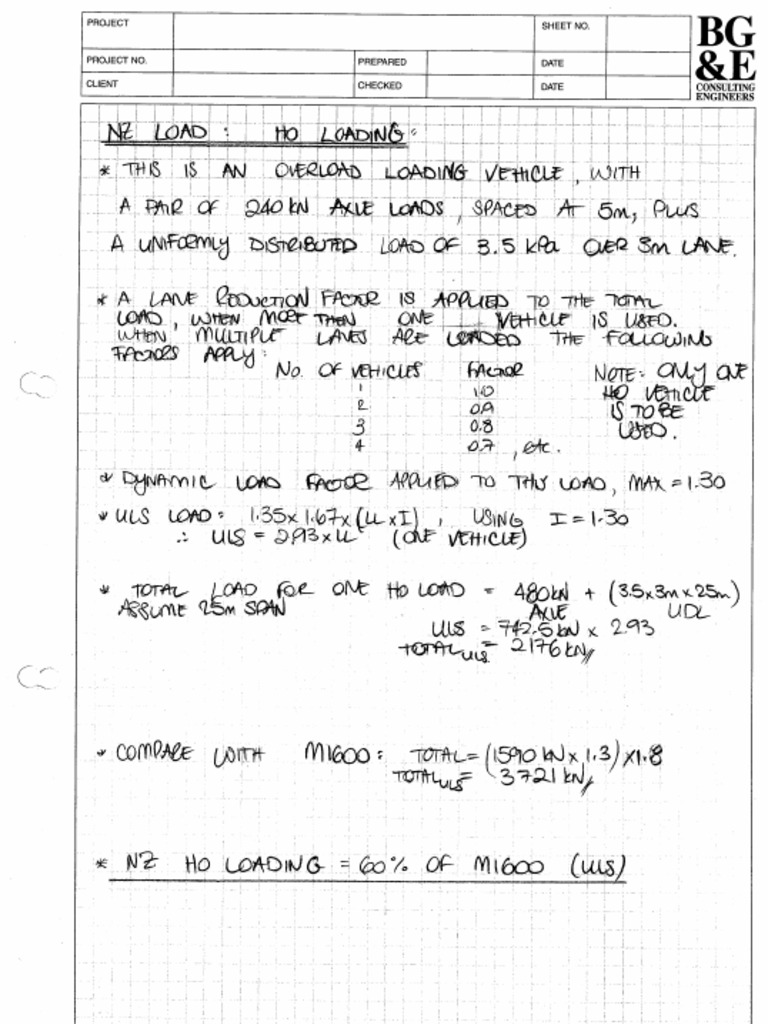 PROJECT
SHEET NO.
PROJECT NO.
PREPARED
DATE
CLIENT
CHECKED
DATE
BG
&E
CONSULTING
ENGINEERS
NZ LOAD : HO LOADING:
* THIS IS AN OVERLOAD LOADING VEHICLE, WITH
A PAIR OF 240 KN AXLE LOADS, SPACED AT 5m, PLUS
A UNIFORMLY DISTRIBUTED LOAD OF 3.5 kPa OVER 3m LANE.
* A LANE REDUCTION FACTOR IS APPLIED TO THE TOTAL
LOAD, WHEN MORE THEN ONE VEHICLE IS USED.
WHEN MULTIPLE LANES ARE LOADED THE FOLLOWING
FACTORS APPLY:
No. OF VEHICLES FACTOR
1 1.0
2 0.9
3 0.8
4 0.7, etc.
NOTE: ONLY ONE
HO VEHICLE
IS TO BE
USED.
* DYNAMIC LOAD FACTOR APPLIED TO THIS LOAD, MAX = 1.30
* ULS LOAD: 1.35 x 1.67 x (LL x I), USING I = 1.30
∴ ULS = 2.93 x LL (ONE VEHICLE)
* TOTAL LOAD FOR ONE HO LOAD = 480 kN + (3.5 x 3m x 25m)
ASSUME 25m SPAN AXLE UDL
ULS = 742.5 kN x 2.93
TOTAL ULS = 2176 kN //
* COMPARE WITH M1600: TOTAL = (1590 kN x 1.3) x 1.8
TOTAL ULS = 3721 kN //
* NZ HO LOADING = 60% OF M1600 (ULS)